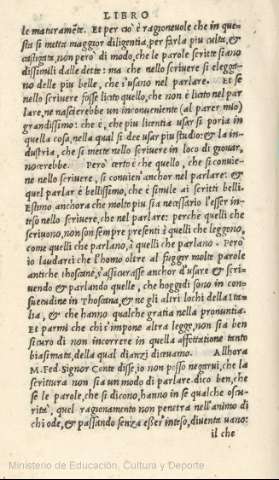 LIBRO
le maturamẽte. Et per cio' è ragioneuole, che in que-
sta si metta maggior diligentia, per farla piu culta, &
castigata, non però di modo, che le parole scritte siano
dissimili dalle dette: ma che nello scriuere si elegga-
no delle piu belle, che s'usano nel parlare. Et se
nello scriuere fosse licito quello, che non è licito nel par
lare, ne nascerebbe un inconueniente (al parer mio)
grandissimo: che è, che piu licentia usar si poria in
quella cosa, nella qual si dee usar piu studio: & la in-
dustria, che si mette nello scriuere in loco di giouar,
nocerebbe. Però certo è che quello, che si conuie-
ne nello scriuere, si conuien' anchor nel parlare: &
quel parlar è bellissimo, che è simile ai scritti belli.
Estimo anchora che molto piu sia necessario l'esser in-
teso nello scriuere, che nel parlare: perche quelli che
scriuono, non son sempre presenti à quelli che leggono,
come quelli che parlano, à quelli che parlano. Però
io laudarei che l'homo oltre al fuggir molte parole
antiche thoscane, s'assicurasse anchor d'usare & scri-
uendo & parlando quelle, che hoggidi sono in con-
suetudine in Thoscana, & ne gli altri lochi della Ita-
lia, & che hanno qualche gratia nella pronuntia.
Et parmi che chi s'impone altra legge, non sia ben
sicuro di non incorrere in quella affettatione tanto
biasimata, della qual dianzi diceuamo. Allhora
M. Fed. Signor Conte disse, io non posso negarui, che la
scrittura non sia un modo di parlare. dico ben, che
se le parole, che si dicono, hanno in se qualche oscu-
rità, quel ragionamento non penetra nell'animo di
chi ode, & passando senza esser inteso, diuenta uano:
il che
Ministerio de Educación, Cultura y Deporte